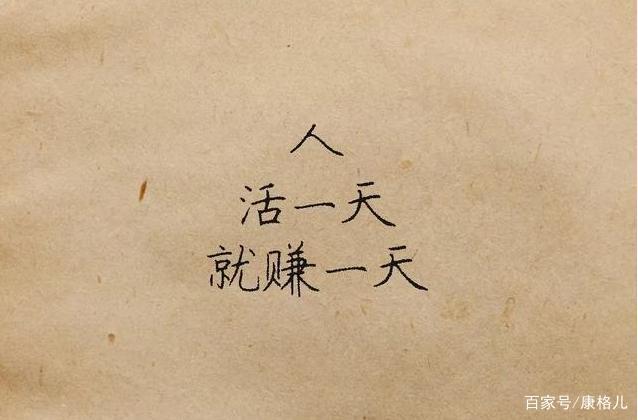 人
活一天
就赚一天
百家号/康格儿